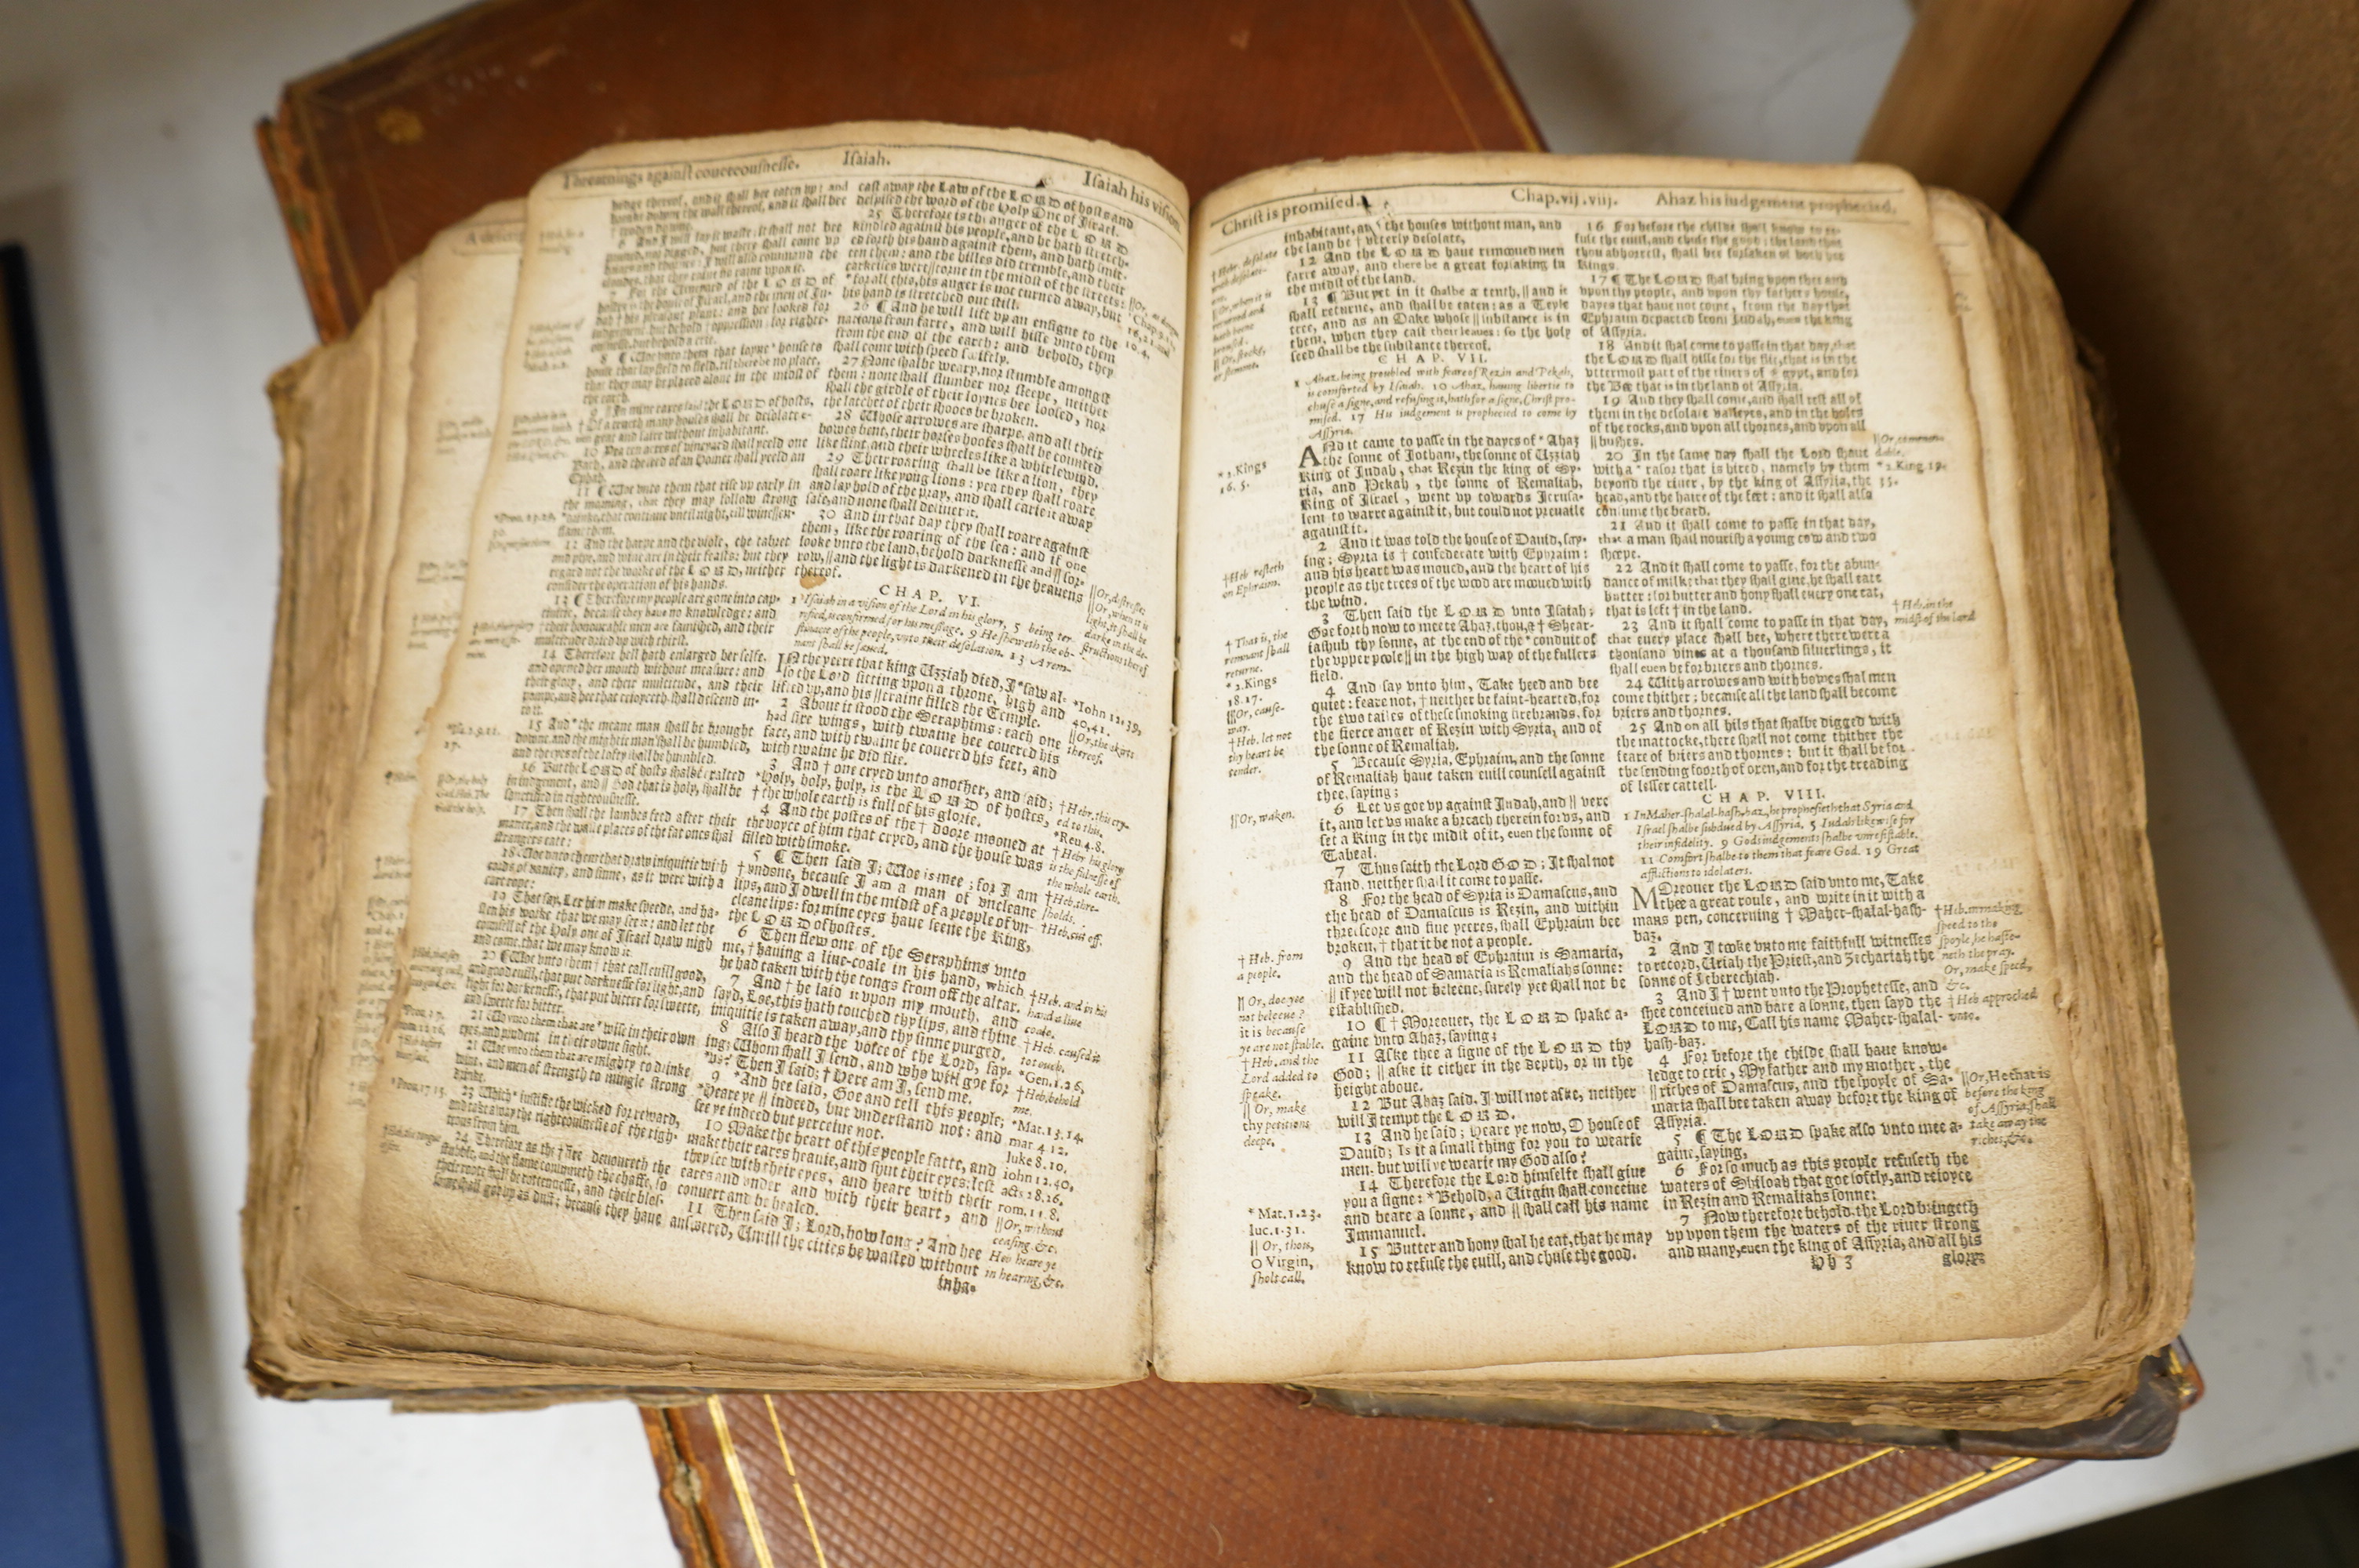 Threatnings against couetouſneſſe.
Iſaiah.
Iſaiah his viſion.
hedge thereof, and it ſhall bee eaten vp: and
breake downe the wall thereof, and it ſhall bee
troden downe.
6 And I will lay it waſte: it ſhall not bee
pruned, nor digged, but there ſhall come vp
briers and thornes: I will alſo command the
cloudes, that they raine no raine vpon it.
7 For the vineyard of the LORD of
8 ¶ Woe vnto them that ioyne * houſe to
houſe, that lay field to field, till there be no place,
that they may be placed alone in the midſt of
the earth.
9 || In mine eares ſaid the LORD of hoſts,
† Of a trueth many houſes ſhall be deſolate,
euen great and faire without inhabitant.
10 Yea ten acres of vineyard ſhall yeeld one
Bath, and the ſeed of an Homer ſhall yeeld an
Ephah.
11 ¶ Woe vnto them that riſe vp early in
the morning, that they may follow ſtrong
drinke, that continue vntil night, till wine
flame them.
12 And the harpe and the viole, the tabret
and pipe, and wine are in their feaſts: but they
regard not the worke of the LORD, neither
conſider the operation of his hands.
13 ¶ Therefore my people are gone into cap-
tiuitie, becauſe they haue no knowledge: and
† their honourable men are famiſhed, and their
multitude dried vp with thirſt.
14 Therefore hell hath enlarged her ſelfe,
and opened her mouth without meaſure: and
their glory, and their multitude, and their
pompe, and hee that reioyceth, ſhall deſcend in-
to it.
15 And * the meane man ſhall be brought
downe, and the mightie man ſhall be humbled,
and the eyes of the lofty ſhall be humbled.
16 But the LORD of hoſts ſhalbe exalted
in iudgement, and || God that is holy, ſhall be
ſanctified in righteouſneſſe.
17 Then ſhall the lambes feed after their
maner, and the waſte places of the fat ones ſhal
ſtrangers eate.
18 Woe vnto them that draw iniquitie with
cords of vanity, and ſinne, as it were with a
cart rope:
19 That ſay, Let him make ſpeede, and ha-
ſten his worke, that we may ſee it: and let the
counſell of the Holy one of Iſrael draw nigh
and come, that we may know it.
20 ¶ Woe vnto them † that call euill good,
and good euill, that put darkneſſe for light, and
light for darkeneſſe, that put bitter for ſweete,
and ſweete for bitter.
21 Wo vnto them that are * wiſe in their own
eyes, and prudent in their owne ſight.
22 Woe vnto them that are mighty to drinke
wine, and men of ſtrength to mingle ſtrong
drinke.
23 Which * iuſtifie the wicked for reward,
and take away the righteouſneſſe of the righ-
teous from him.
24 Therefore as the † fire deuoureth the
ſtubble, and the flame conſumeth the chaffe, ſo
their roote ſhall be rottenneſſe, and their bloſ-
ſome ſhall goe vp as duſt: becauſe they haue
caſt away the Law of the LORD of hoſts and
deſpiſed the word of the Holy One of Iſrael.
25 Therefore is the anger of the LORD
kindled againſt his people, and he hath ſtretch-
ed forth his hand againſt them, and hath ſmit-
ten them: and the hilles did tremble, and their
carkeiſes were || torne in the midſt of the ſtreets:
* for all this, his anger is not turned away, but
his hand is ſtretched out ſtill.
26 ¶ And he will lift vp an enſigne to the
nations from farre, and will hiſſe vnto them
from the end of the earth: and behold, they
ſhall come with ſpeed ſwiftly.
27 None ſhalbe weary, nor ſtumble amongſt
them: none ſhall ſlumber nor ſleepe, neither
ſhall the girdle of their loynes bee looſed, nor
the latchet of their ſhooes be broken.
28 Whoſe arrowes are ſharpe, and all their
bowes bent, their horſes hoofes ſhall be counted
like flint, and their wheeles like a whirlewind.
29 Their roaring ſhall be like a lion, they
ſhall roare like yong lions: yea they ſhall roare
and lay hold of the pray, and ſhall carie it away
ſafe, and none ſhall deliuer it.
30 And in that day they ſhall roare againſt
them, like the roaring of the ſea: and if one
looke vnto the land, behold darkneſſe and || ſor-
row, || and the light is darkened in the heauens
thereof.
|| Or, diſtreſſe.
|| Or, when it is
light, it ſhall be
darke in the de-
ſtructions therof
CHAP. VI.
1 Iſaiah in a viſion of the Lord in his glory, 5 being ter-
rified, is confirmed for his meſſage. 9 He ſheweth the ob-
ſtinacie of the people, vnto their deſolation. 13 A rem-
nant ſhall be ſaued.
IN the yeere that king Uzziah died, I * ſaw al-
ſo the Lord ſitting vpon a throne, high and
lifted vp, and his || traine filled the Temple.
2 Aboue it ſtood the Seraphims: each one
had ſixe wings, with twaine hee couered his
face, and with twaine he couered his feet, and
with twaine he did flie.
3 And † one cryed vnto another, and ſaid;
* Holy, holy, holy, is the LORD of hoſtes,
† the whole earth is full of his glorie.
4 And the poſtes of the † doore mooued at
the voyce of him that cryed, and the houſe was
filled with ſmoke.
5 ¶ Then ſaid I; Woe is mee; for I am
† vndone, becauſe I am a man of vncleane
lips, and I dwell in the midſt of a people of vn-
cleane lips: for mine eyes haue ſeene the King,
the LORD of hoſtes.
6 Then flew one of the Seraphims vnto
me, † hauing a liue-coale in his hand, which
he had taken with the tongs from off the altar.
7 And † he laid it vpon my mouth, and
ſayd, Loe, this hath touched thy lips, and thine
iniquitie is taken away, and thy ſinne purged.
8 Alſo I heard the voyce of the Lord, ſay-
ing; Whom ſhall I ſend, and who will goe for
* vs? Then I ſaid; † Here am I, ſend me.
9 * And hee ſaid, Goe and tell this people;
* Heare ye || indeed, but vnderſtand not: and
ſee ye indeed but perceiue not.
10 Make the heart of this people fatte, and
make their eares heauie, and ſhut their eyes: leſt
they ſee with their eyes, and heare with their
eares and vnder and with their heart, and
conuert and be healed.
11 Then ſaid I; Lord, how long? And hee
anſwered, Untill the cities be waſted without
inha-
* Iohn 12.39,
40,41.
|| Or, the skirts
thereof.
† Hebr. this cry-
ed to this.
* Reu.4.8.
† Hebr. his glory
is the fulneſſe of
the whole earth.
† Heb. thre-
ſholds.
† Heb. cut off.
† Heb. and in his
hand a liue
coale.
† Heb. cauſed it
to touch.
* Gen.1.26.
† Heb. behold
me.
* Mat.13.14.
mar.4.12.
luke 8.10.
iohn 12.40.
acts 28.26.
rom.11.8.
|| Or, without
ceaſing, &c.
Heb. heare ye
in hearing, &c.
Chriſt is promiſed.
Chap.vij.viij.
Ahaz his iudgement propheſied.
† Hebr. deſolate
inhabitant, and the houſes without man, and
the land be † vtterly deſolate,
12 And the LORD haue remooued men
farre away, and there be a great forſaking in
the midſt of the land.
13 ¶ But yet in it ſhalbe a tenth, || and it
ſhall returne, and ſhall be eaten: as a Teyle
tree, and as an Oake whoſe || ſubſtance is in
them, when they caſt their leaues: ſo the holy
ſeed ſhall be the ſubſtance thereof.
CHAP. VII.
1 Ahaz being troubled with feare of Rezin and Pekah,
is comforted by Iſaiah. 10 Ahaz, hauing libertie to
chuſe a ſigne, and refuſing it, hath for a ſigne, Chriſt pro-
miſed. 17 His iudgement is propheſied to come by
Aſſyria.
ANd it came to paſſe in the dayes of * Ahaz
the ſonne of Iotham, the ſonne of Uzziah
King of Iudah, that Rezin the king of Sy-
ria, and Pekah, the ſonne of Remaliah,
King of Iſrael, went vp towards Jeruſa-
lem to warre againſt it, but could not preuaile
againſt it.
2 And it was told the houſe of Dauid, ſay-
ing; Syria is † confederate with Ephraim:
and his heart was moued, and the heart of his
people as the trees of the wood are mooued with
the wind.
3 Then ſaid the LORD vnto Iſaiah;
Goe forth now to meete Ahaz, thou, & † Shear-
iaſhub thy ſonne, at the end of the * conduit of
the vpper poole || in the high way of the fullers
field.
4 And ſay vnto him, Take heed and bee
quiet: feare not, † neither be faint-hearted, for
the two tailes of theſe ſmoking firebrands, for
the fierce anger of Rezin with Syria, and of
the ſonne of Remaliah.
5 Becauſe Syria, Ephraim, and the ſonne
of Remaliah haue taken euill counſell againſt
thee, ſaying;
6 Let vs goe vp againſt Iudah, and || vexe
it, and let vs make a breach therein for vs, and
ſet a King in the midſt of it, euen the ſonne of
Tabeal.
7 Thus ſaith the Lord GOD; It ſhal not
ſtand, neither ſhall it come to paſſe.
8 For the head of Syria is Damaſcus, and
the head of Damaſcus is Rezin, and within
threeſcore and fiue yeeres, ſhall Ephraim bee
broken, † that it be not a people.
9 And the head of Ephraim is Samaria,
and the head of Samaria is Remaliahs ſonne:
|| if yee will not beleeue, ſurely yee ſhall not be
eſtabliſhed.
10 ¶ † Moreouer, the LORD ſpake a-
gaine vnto Ahaz, ſaying;
11 Aſke thee a ſigne of the LORD thy
God; || aſke it either in the depth, or in the
height aboue.
12 But Ahaz ſaid, I will not aſke, neither
will I tempt the LORD.
13 And he ſaid; Heare ye now, O houſe of
Dauid; Is it a ſmall thing for you to wearie
men, but will ye wearie my God alſo?
14 Therefore the Lord himſelfe ſhall giue
you a ſigne: * Behold, a Uirgin ſhall conceiue
and beare a ſonne, and || ſhall call his name
Immanuel.
15 Butter and hony ſhal he eat, that he may
know to refuſe the euill, and chuſe the good.
* 2.Kings
16.5.
† Heb. reſteth
on Ephraim.
† That is, the
remnant ſhall
returne.
* 2.Kings
18.17.
|| Or, cauſe-
way.
† Heb. let not
thy heart be
tender.
|| Or, waken.
† Heb. from
a people.
|| Or, doe yee
not beleeue?
it is becauſe
ye are not ſtable.
† Heb. and the
Lord added to
ſpeake.
|| Or, make
thy petitions
deepe.
* Mat.1.23.
luc.1.31.
|| Or, thou,
O Virgin,
ſhalt call.
16 For before the childe ſhall know to re-
fuſe the euill, and chuſe the good; the land that
thou abhorreſt, ſhall bee forſaken of both her
kings.
17 ¶ The LORD ſhal bring vpon thee and
vpon thy people, and vpon thy fathers houſe,
dayes that haue not come, from the day that
Ephraim departed from Iudah, euen the king
of Aſſyria.
18 And it ſhal come to paſſe in that day, that
the LORD ſhall hiſſe for the flie, that is in the
vttermoſt part of the riuers of Egypt, and for
the Bee that is in the land of Aſſyria.
19 And they ſhall come, and ſhall reſt all of
them in the deſolate valleyes, and in the holes
of the rocks, and vpon all thornes, and vpon all
|| buſhes.
20 In the ſame day ſhall the Lord ſhaue
with a * raſor that is hired, namely by them
beyond the riuer, by the king of Aſſyria, the
head, and the haire of the feet: and it ſhall alſo
conſume the beard.
21 And it ſhall come to paſſe in that day,
that a man ſhall nouriſh a young cow and two
ſheepe.
22 And it ſhall come to paſſe, for the abun-
dance of milke that they ſhall giue, he ſhall eate
butter: for butter and hony ſhall euery one eat,
that is left † in the land.
23 And it ſhall come to paſſe in that day,
that euery place ſhall bee, where there were a
thouſand vines at a thouſand ſiluerlings, it
ſhall euen be for briers and thornes.
24 With arrowes and with bowes ſhal men
come thither: becauſe all the land ſhall become
briers and thornes.
25 And on all hils that ſhalbe digged with
the mattocke, there ſhall not come thither the
feare of briers and thornes: but it ſhall be for
the ſending foorth of oxen, and for the treading
of leſſer cattell.
CHAP. VIII.
1 In Maher-ſhalal-haſh-baz, he propheſieth that Syria and
Iſrael ſhalbe ſubdued by Aſſyria. 5 Iudah likewiſe for
their infidelity. 9 Gods iudgements ſhalbe vnreſiſtable.
11 Comfort ſhalbe to them that feare God. 19 Great
afflictions to idolaters.
MOreouer the LORD ſaid vnto me, Take
thee a great roule, and write in it with a
mans pen, concerning † Maher-ſhalal-haſh-
baz.
2 And I tooke vnto me faithfull witneſſes
to record, Uriah the Prieſt, and Zechariah the
ſonne of Ieberechiah.
3 And I † went vnto the Propheteſſe, and
ſhee conceiued and bare a ſonne, then ſayd the
LORD to me, Call his name Maher-ſhalal-
haſh-baz.
4 For before the childe ſhall haue know-
ledge to crie, My father and my mother, the
|| riches of Damaſcus, and the ſpoyle of Sa-
maria ſhall bee taken away before the king of
Aſſyria.
5 ¶ The LORD ſpake alſo vnto mee a-
gaine, ſaying,
6 For ſo much as this people refuſeth the
waters of Shiloah that goe ſoftly, and reioyce
in Rezin and Remaliahs ſonne:
7 Now therefore behold, the Lord bringeth
vp vpon them the waters of the riuer ſtrong
and many, euen the king of Aſſyria, and all his
Hh 3
glory:
* 2.King.19.
† Heb. in the
midſt of the land
† Heb. in making
ſpeed to the
ſpoyle, he haſte-
neth the pray.
Or, make ſpeed,
&c.
† Heb. approched
vnto.
|| Or, He that is
before the king
of Aſſyria, ſhall
take away the
riches, &c.